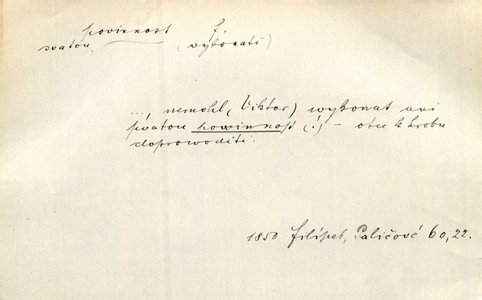 povinnost f.
svatou (vykonati)
... nemohl (Viktor) wykonat ani
swatou powinnost (!) – otce k hrobu
doprowoditi.
1850 Filípek, Paličowé 60, 22.